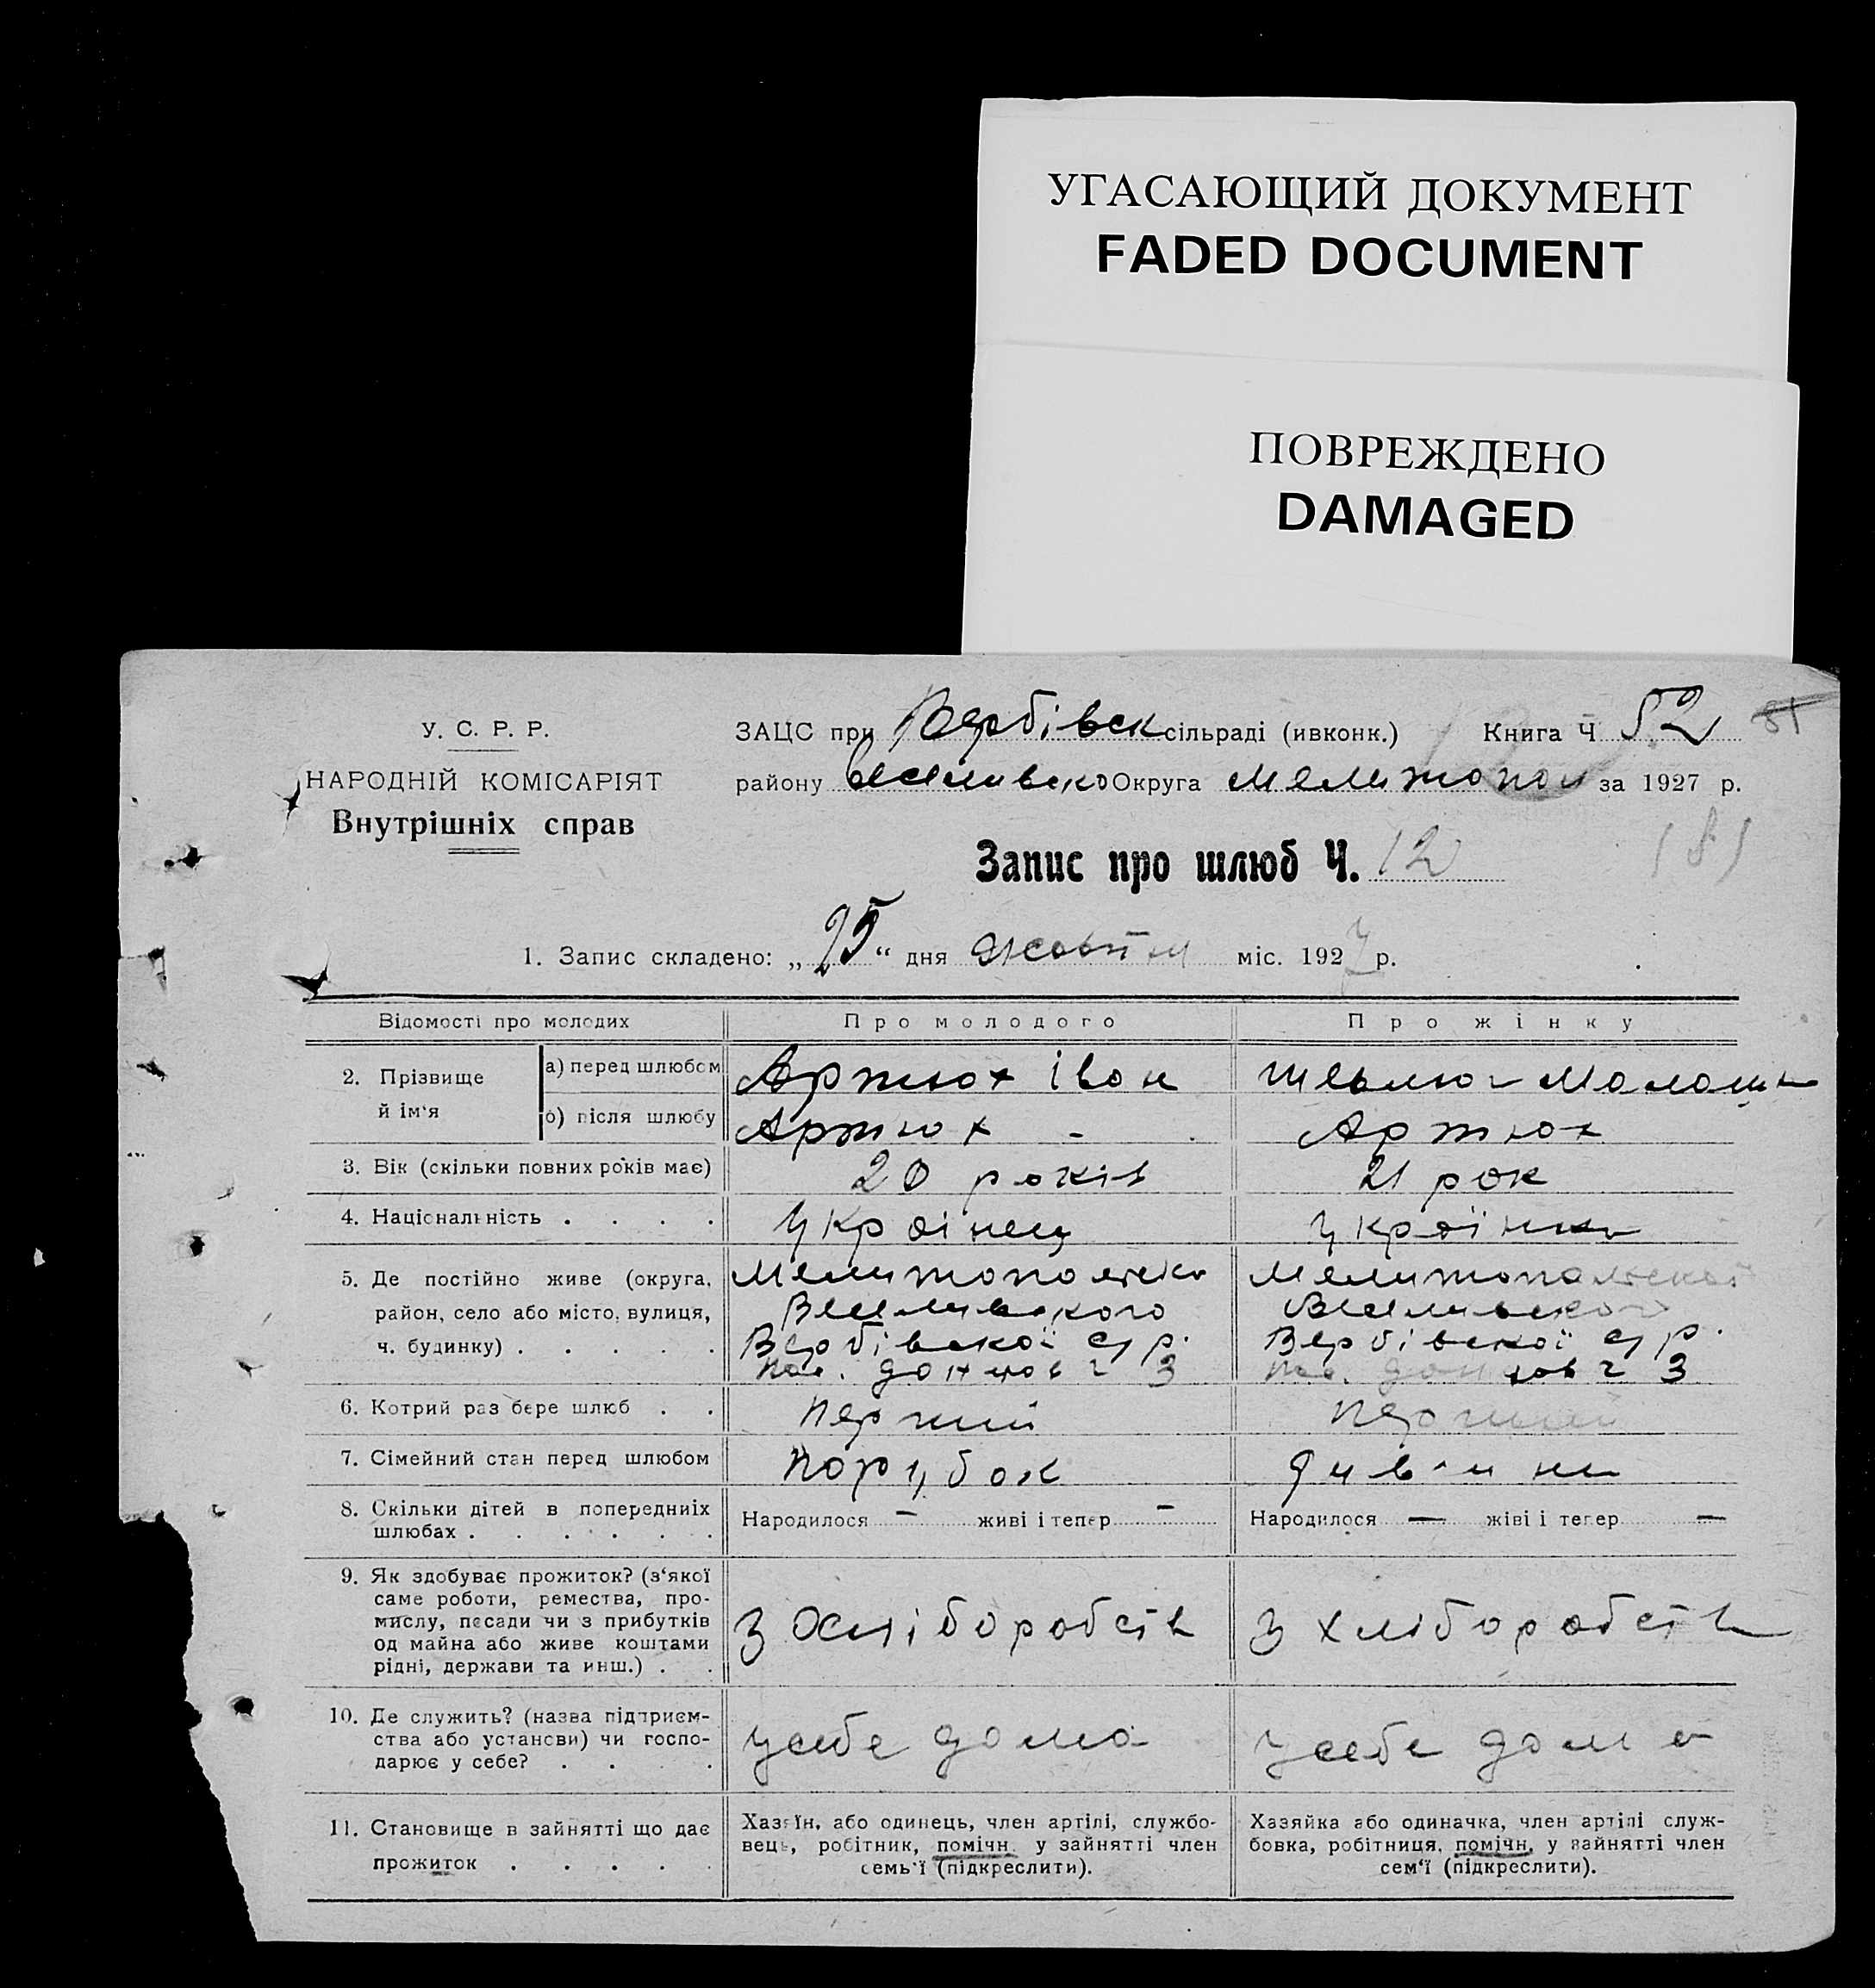 УГАСАЮЩИЙ ДОКУМЕНТ
FADED DOCUMENT
ПОВРЕЖДЕНО
DAMAGED
У. С. Р. Р.
НАРОДНІЙ КОМІСАРІЯТ
Внутрішніх справ
ЗАЦС при Вербівськ сільраді (ивконк.) Книга Ч 52 81
району Округа Мелитопол за 1927 р.
Запис про шлюб Ч. 12 181
1. Запис складено: „25“ дня жовтня міс. 1927 р.
Відомості про молодих
Про молодого
Про жінку
2. Прізвище й ім'я
а) перед шлюбом
Артюх Іван
б) після шлюбу
Артюх -
Артюх
3. Вік (скільки повних років має)
20 років
21 рок
4. Національність . . . .
Українец
Українка
5. Де постійно живе (округа,
район, село або місто, вулиця,
ч. будинку) . . . . .
Мелитопольско
Веселивського
Вербівської с/р.
ч 3
Мелитопольской
Веселивського
Вербівської с/р.
ч 3
6. Котрий раз бере шлюб . .
перший
перший
7. Сімейний стан перед шлюбом
Парубок
дивчина
8. Скільки дітей в попередниіх
шлюбах . . . . . .
Народилося — живі і тепер —
Народилося — жіві і тепер —
9. Як здобуває прожиток? (з'якої
саме роботи, ремества, про-
мислу, посади чи з прибутків
од майна або живе коштами
рідні, держави та инш.) . .
З Хліборобств
З хліборобств
10. Де служить? (назва підприєм-
ства або установи) чи госпо-
дарює у себе? . . . .
усебе дома
усебе дома
11. Становище в зайнятті що дає
прожиток . . . . .
Хазяїн, або одинець, член артілі, службо-
вець, робітник, помічн. у зайнятті член
семь'ї (підкреслити).
Хазяйка або одиначка, член артілі служ-
бовка, робітниця, помічн, у зайнятті член
сем'ї (підкреслити).